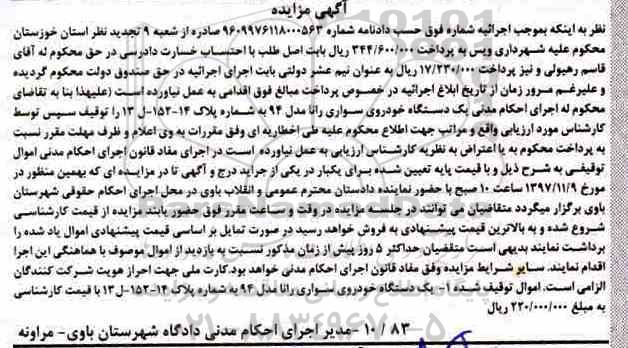 آگهی مزایده
نظر به اینکه بموجب اجرائیه شماره فوق حسب دادنامه شماره ۹۶۰۹۹۷۶۱۱۸۰۰۰۵۶۳ صادره از شعبه ۹ تجدید نظر استان خوزستان
محکوم علیه شهرداری ویس به پرداخت ۳۴۴/۶۰۰/۰۰۰ ریال بابت اصل طلب با احتساب خسارت دادرسی در حق محکوم له آقای
قاسم رهیولی و نیز پرداخت ۱۷/۲۳۰/۰۰۰ ریال به عنوان نیم عشر دولتی بابت اجرای اجرائیه در حق صندوق دولت محکوم گردیده
و علیرغم مرور زمان از تاریخ ابلاغ اجرائیه در خصوص پرداخت مبالغ فوق اقدامی به عمل نیاورده است (علیهذا بنا به تقاضای
محکوم له اجرای احکام مدنی یک دستگاه خودروی سواری رانا مدل ۹۴ به شماره پلاک ۱۴-۱۵۲-ل ۱۳ را توقیف سپس توسط
کارشناس مورد ارزیابی واقع و مراتب جهت اطلاع محکوم علیه طی اخطاریه ای وفق مقررات به وی اعلام و ظرف مهلت مقرر نسبت
به پرداخت محکوم به یا اعتراض به نظریه کارشناس ارزیابی به عمل نیاورده است در اجرای مفاد قانون اجرای احکام مدنی اموال
توقیفی به شرح ذیل و با قیمت پایه تعیین شده برای یکبار در یکی از جراید درج و آگهی تا در مزایده ای که بهمین منظور در
مورخ ۱۳۹۷/۱۱/۹ ساعت ۱۰ صبح با حضور نماینده دادستان محترم عمومی و انقلاب باوی در محل اجرای احکام حقوقی شهرستان
باوی برگزار میگردد متقاضیان می توانند در جلسه مزایده در وقت و ساعت مقرر فوق حضور یابند مزایده از قیمت کارشناسی
شروع شده و به بالاترین قیمت پیشنهادی به فروش خواهد رسید در صورت تمایل بر اساسی قیمت پیشنهادی اموال یاد شده را
برداشت نمایند بدیهی است متقضیان حداکثر ۵ روز پیش از زمان مذکور نسبت به بازدید از اموال موصوف با هماهنگی این اجرا
اقدام نمایند. سایر شرایط مزایده وفق مفاد قانون اجرای احکام مدنی خواهد بود.کارت ملی جهت احراز هویت شرکت کنندگان
الزامی است. اموال توقیف شده ۱- یک دستگاه خودروی سواری رانا مدل ۹۴ به شماره پلاک ۱۴-۱۵۲-ل۱۳ با قیمت کارشناسی
به مبلغ ۲۲۰/۰۰۰/۰۰۰ ریال
۱۰ / ۸۳ -مدیر اجرای احکام مدنی دادگاه شهرستان باوی- مراونه